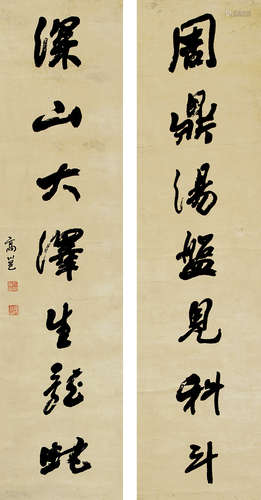 周鼎湯盤見科斗
深山大澤生龍蛇
高邕